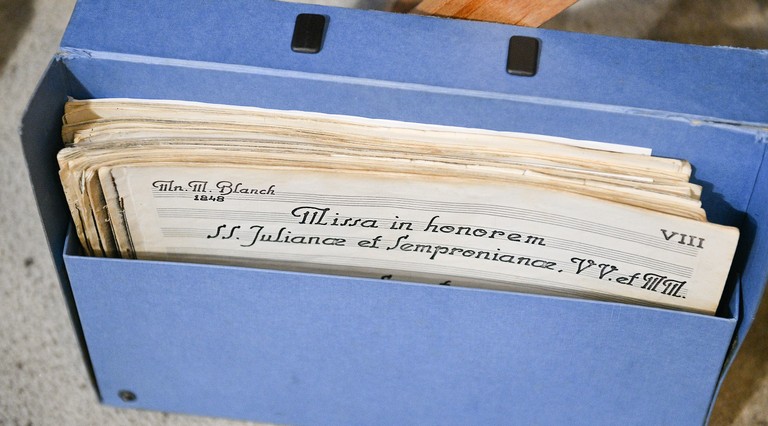 Mn. M. Blanch
1848
VIII
Missa in honorem
SS. Julianæ et Sempronianæ, VV. et MM.